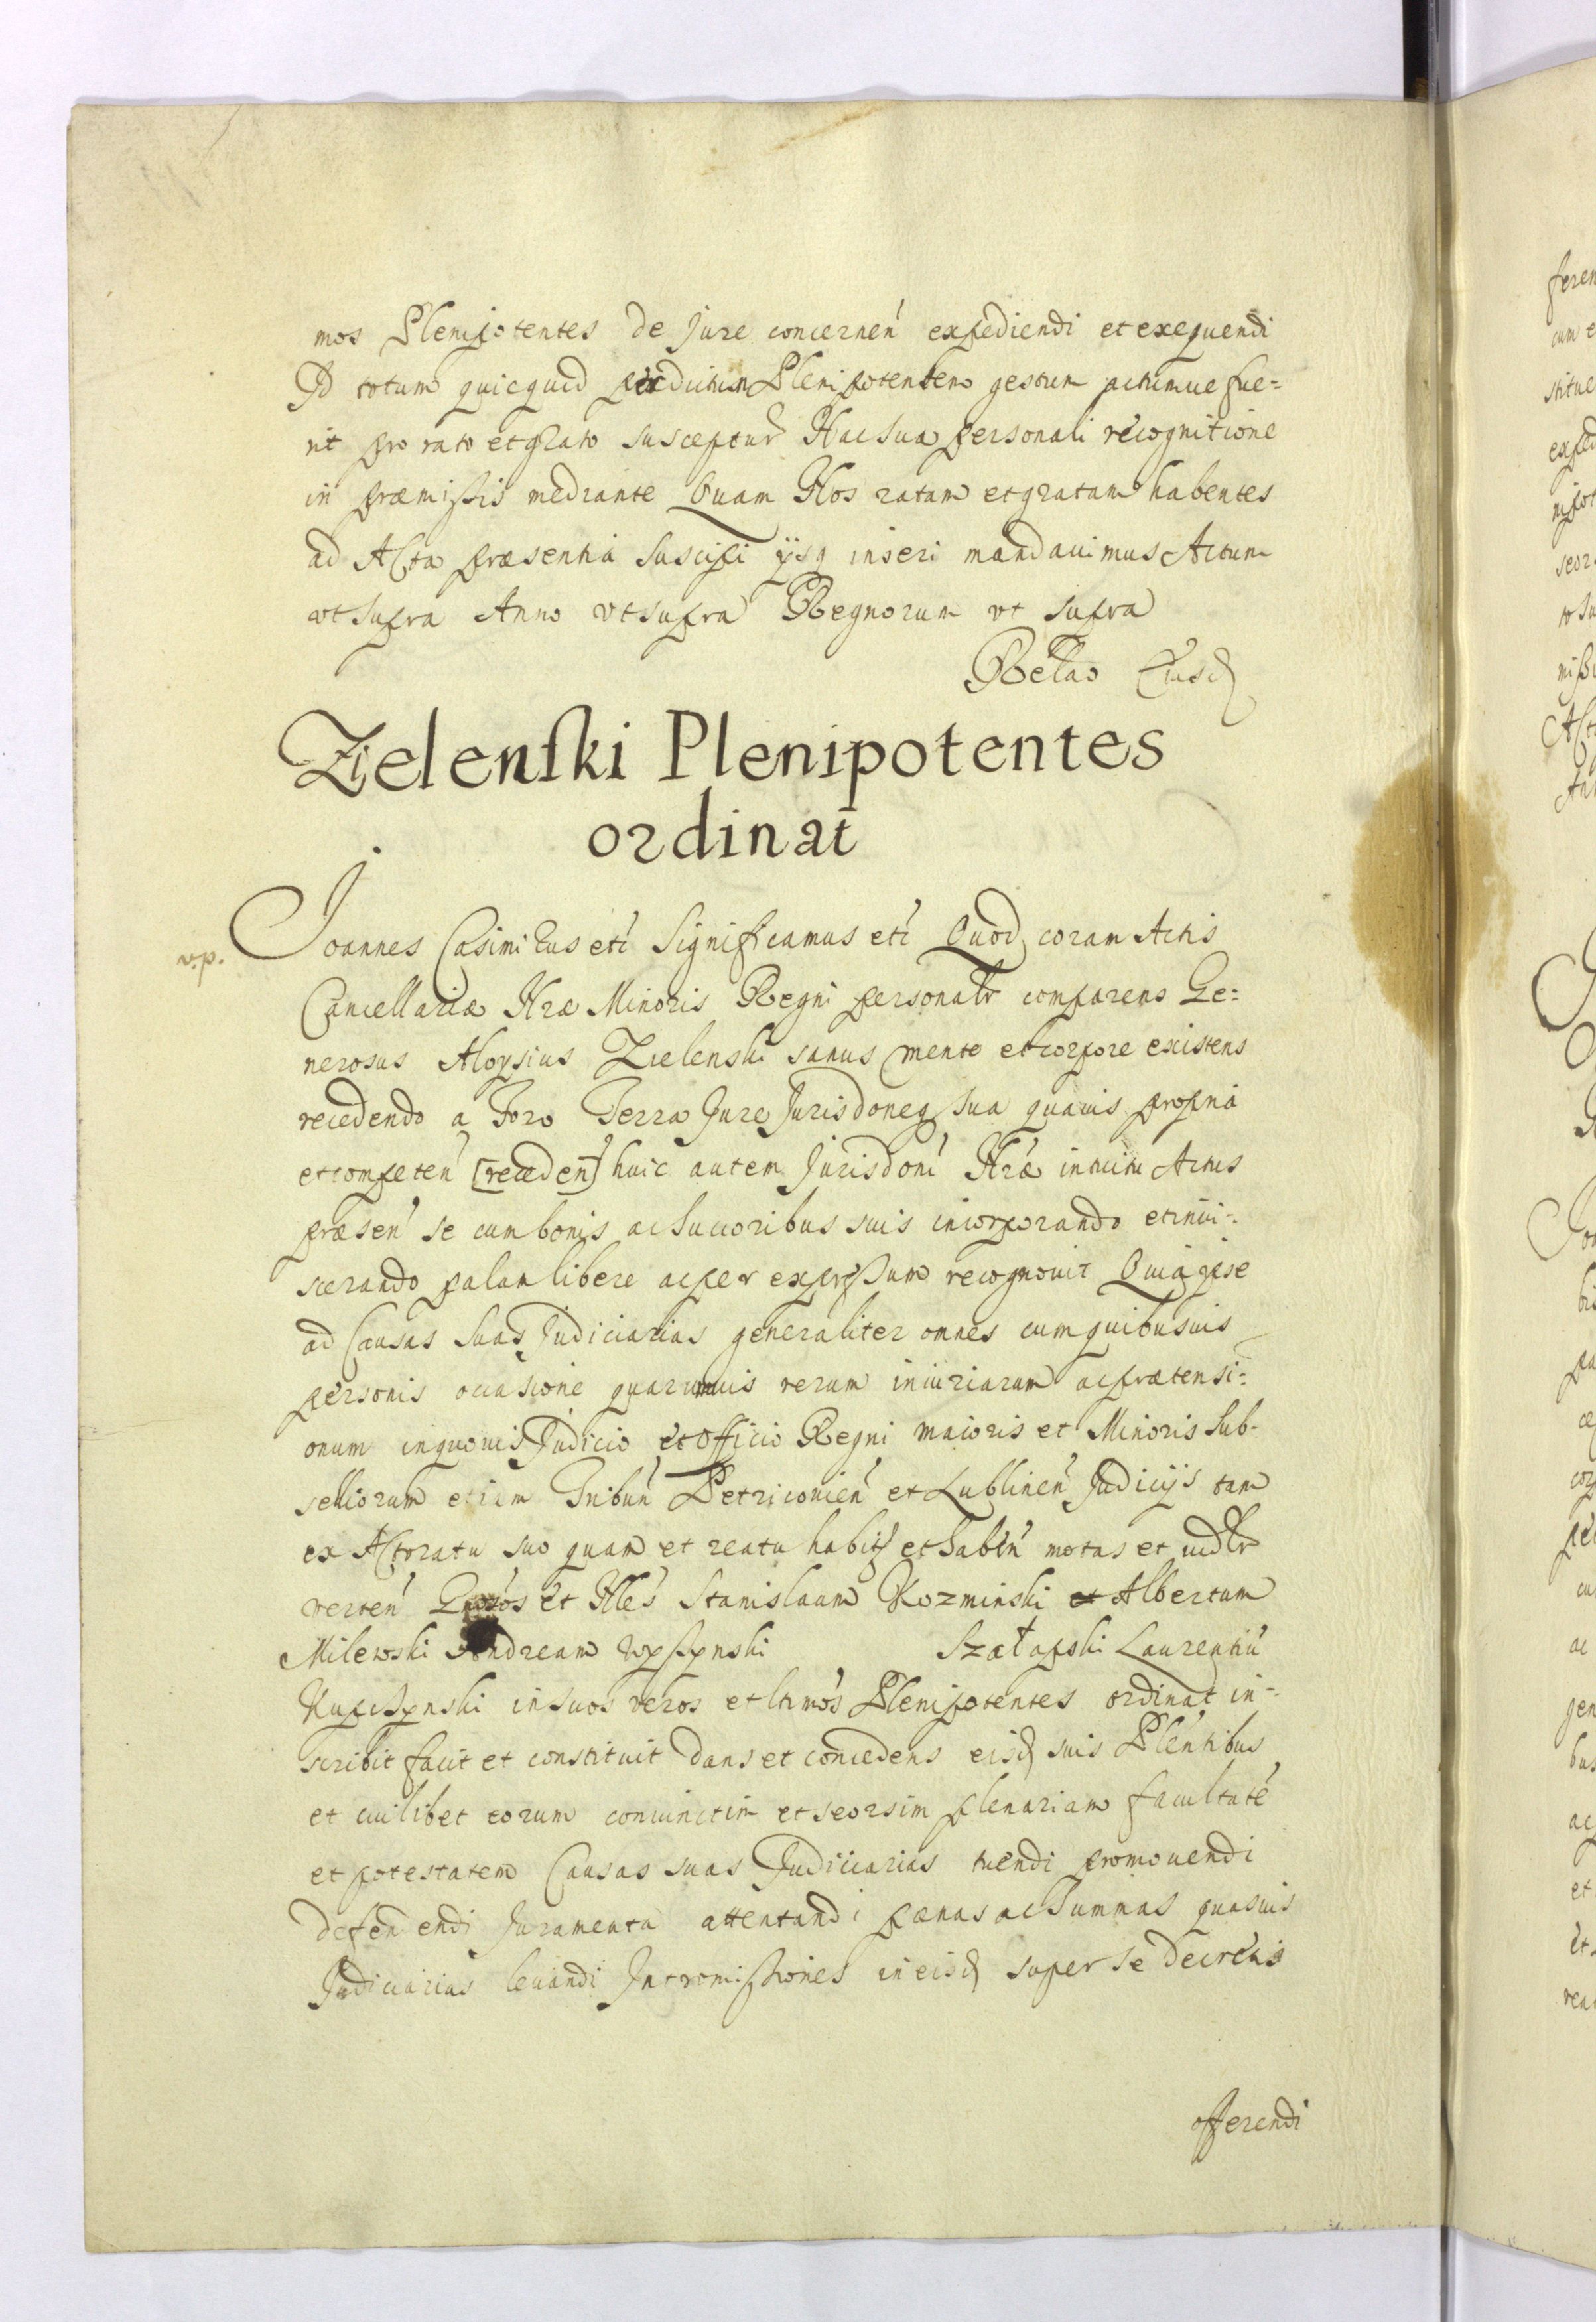 mos Plenipotentes de Jure concernen̄ expediendi et exequendi
Id totum quicquid prædictum Plenipotentem gestum actumue fue=
rit pro rato et grato suscepturꝰ Hac sua personali recognitione
in præmissis mediante Quam Nos ratam et gratam habentes
ad Acta præsentia suscipi ijsq inseri mandauimus Actum
vt supra Anno vt supra Regnorum vt supra
Relao Eiusd
Zielenski Plenipotentes
ordinat
v.p. Joannes Casimirus etc̄ Significamus etc̄ Quod coram Actis
Cancellariæ Nræ Minoris Regni personalr comparens Ge=
nerosus Aloysius Zielenski sanus mente et corpore existens
recedendo a Foro Terra Jure Jurisdoneq sua quauis propria
et competen̄ [receden̄] huic autem Jurisdoni Nræ intuitu Actus
præsen̄ se cum bonis ac succoribus suis incorporando et inui=
scerando palam libere ac per expressum recognouit Quia ipse
ad Causas suas Judiciarias generaliter omnes cum quibusuis
personis occasione quarumuis rerum iniuriarum ac prætensi=
onum in quouis Judicio et Officio Regni maioris et Minoris sub-
selliorum etiam Tribun̄ Petricouien̄ et Lublinen̄ Judicijs tam
ex Actoratu suo quam et reatu habit et haben̄ motas et
verten̄ et Nlēs Stanislaum Kozminski et Albertum
Milewski Andream Wyssynski Szałapski Laurentiū
in suos veros et ltimos Plenipotentes ordinat in=
scribit facit et constituit dans et concedens eisd suis Plentibus
et cuilibet eorum coniunctim et seorsim plenariam facultatē
et potestatem Causas suas Judiciarias tuendi promouendi
defen endi Juramenta attentandi pænas ac summas quasuis
Judiciarias leuandi Intromissiones in eisd super se decretis
offerendi